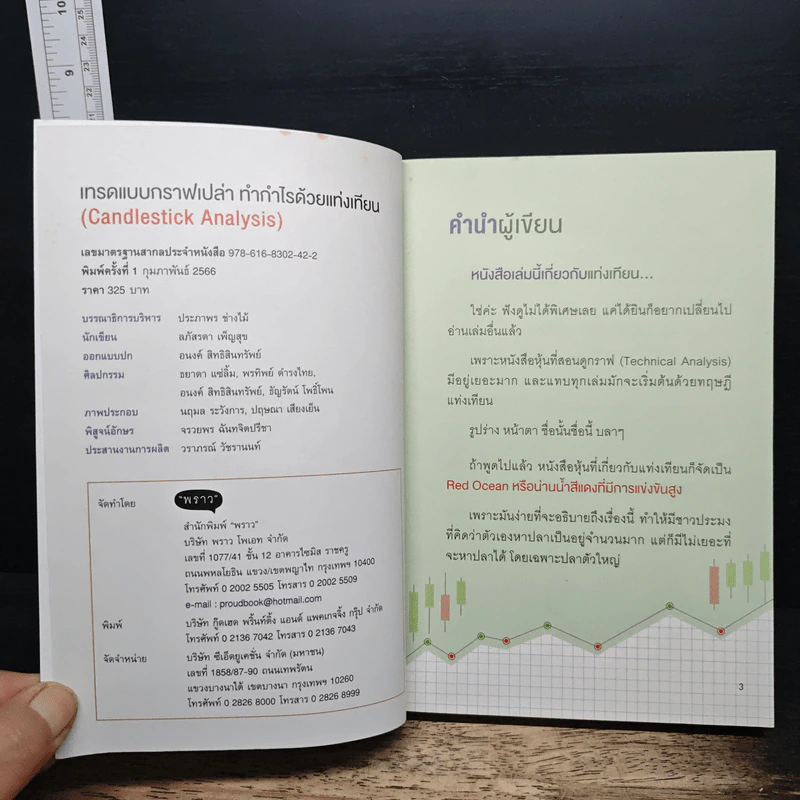 10
9
25
24
23
22
เทรดแบบกราฟเปล่า ทำกำไรด้วยแท่งเทียน
(Candlestick Analysis)
เลขมาตรฐานสากลประจำหนังสือ 978-616-8302-42-2
พิมพ์ครั้งที่ 1 กุมภาพันธ์ 2566
ราคา 325 บาท
บรรณาธิการบริหาร ประภาพร ช่างไม้
นักเขียน ลภัสรดา เพ็ญสุข
ออกแบบปก อนงค์ สิทธิสินทรัพย์
ศิลปกรรม ธยาดา แซ่ลิ้ม, พรทิพย์ ดำรงไทย,
อนงค์ สิทธิสินทรัพย์, ธัญรัตน์ โพธิ์โพน
ภาพประกอบ นฤมล ระวังการ, ปฤษณา เสียงเย็น
พิสูจน์อักษร จรวยพร ฉันทจิตปรีชา
ประสานงานการผลิต วราภรณ์ วัชรานนท์
จัดทำโดย "พราว"
สำนักพิมพ์ "พราว"
บริษัท พราว โพเอท จำกัด
เลขที่ 1077/41 ชั้น 12 อาคารไซมิส ราชครู
ถนนพหลโยธิน แขวง/เขตพญาไท กรุงเทพฯ 10400
โทรศัพท์ 0 2002 5505 โทรสาร 0 2002 5509
e-mail : proudbook@hotmail.com
พิมพ์ บริษัท กู๊ดเฮด พริ้นท์ติ้ง แอนด์ แพคเกจจิ้ง กรุ๊ป จำกัด
โทรศัพท์ 0 2136 7042 โทรสาร 0 2136 7043
จัดจำหน่าย บริษัท ซีเอ็ดยูเคชั่น จำกัด (มหาชน)
เลขที่ 1858/87-90 ถนนเทพรัตน
แขวงบางนาใต้ เขตบางนา กรุงเทพฯ 10260
โทรศัพท์ 0 2826 8000 โทรสาร 0 2826 8999
คำนำผู้เขียน
หนังสือเล่มนี้เกี่ยวกับแท่งเทียน...
ใช่ค่ะ ฟังดูไม่ได้พิเศษเลย แค่ได้ยินก็อยากเปลี่ยนไป
อ่านเล่มอื่นแล้ว
เพราะหนังสือหุ้นที่สอนดูกราฟ (Technical Analysis)
มีอยู่เยอะมาก และแทบทุกเล่มมักจะเริ่มต้นด้วยทฤษฎี
แท่งเทียน
รูปร่าง หน้าตา ชื่อนั้นชื่อนี้ บลาๆ
ถ้าพูดไปแล้ว หนังสือหุ้นที่เกี่ยวกับแท่งเทียนก็จัดเป็น
Red Ocean หรือน่านน้ำสีแดงที่มีการแข่งขันสูง
เพราะมันง่ายที่จะอธิบายถึงเรื่องนี้ ทำให้มีชาวประมง
ที่คิดว่าตัวเองหาปลาเป็นอยู่จำนวนมาก แต่ก็มีไม่เยอะที่
จะหาปลาได้ โดยเฉพาะปลาตัวใหญ่
3